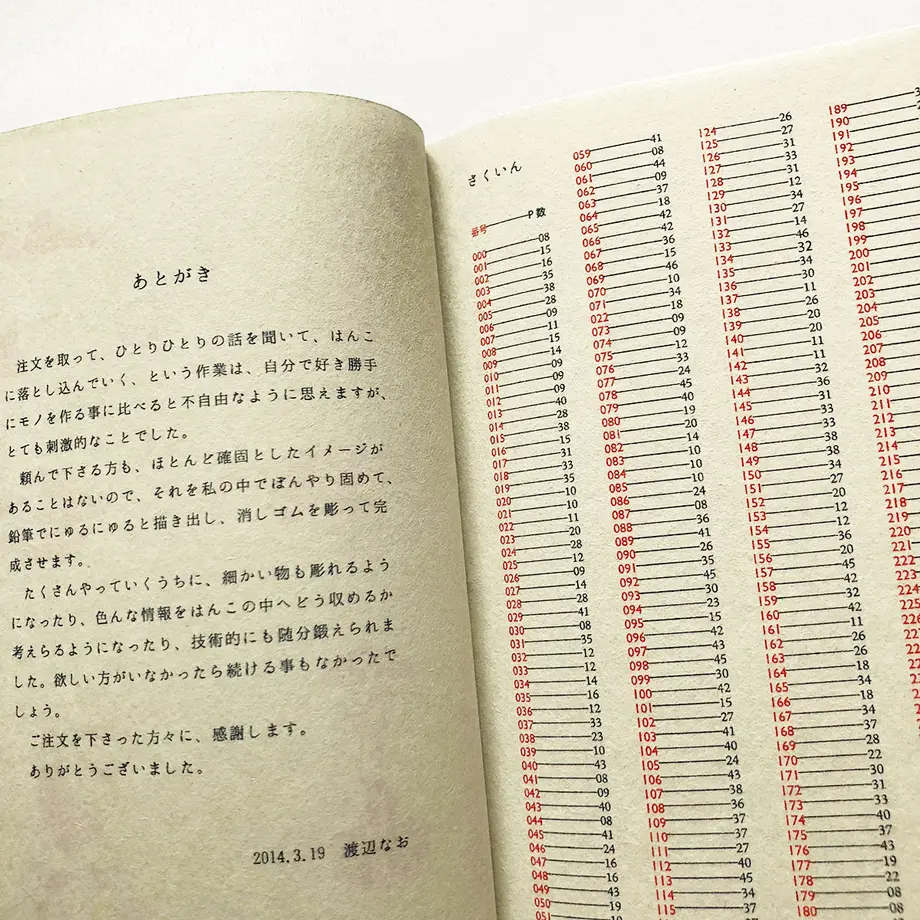 あとがき
注文を取って、ひとりひとりの話を聞いて、はんこ
に落とし込んでいく、という作業は、自分で好き勝手
にモノを作る事に比べると不自由なように思えますが、
とても刺激的なことでした。
頼んで下さる方も、ほとんど確固としたイメージが
あることはないので、それを私の中でぼんやり固めて、
鉛筆でにゅるにゅると描き出し、消しゴムを彫って完
成させます。
たくさんやっていくうちに、細かい物も彫れるよう
になったり、色んな情報をはんこの中へどう収めるか
考えらるようになったり、技術的にも随分鍛えられま
した。欲しい方がいなかったら続ける事もなかったで
しょう。
ご注文を下さった方々に、感謝します。
ありがとうございました。
2014.3.19 渡辺なお
さくいん
番号 P数
000 08
001 15
002 16
003 35
004 38
005 28
006 09
007 11
008 15
009 14
010 09
011 09
012 09
013 40
014 28
015 38
016 15
017 31
018 33
019 35
020 10
021 10
022 11
023 20
024 28
025 12
026 09
027 14
028 28
029 41
030 08
031 35
032 12
033 12
034 14
035 16
036 12
037 33
038 23
039 10
040 43
041 08
042 09
043 40
044 08
045 41
046 24
047 16
048 16
049 43
050 19
051 19
059 41
060 08
061 44
062 09
063 37
064 18
065 42
066 42
067 36
068 15
069 46
070 10
071 34
022 18
073 09
074 09
075 12
076 33
077 24
078 45
079 40
080 19
081 20
082 14
083 10
084 10
085 10
086 24
087 08
088 36
089 41
090 26
091 35
092 45
093 30
094 23
095 15
096 42
097 43
098 45
099 30
100 42
101 15
102 27
103 41
104 40
105 24
106 43
107 38
108 36
109 37
110 37
111 27
112
113 45
114 34
115 37
124 26
125 27
126 31
127 33
128 31
129 12
130 34
131 27
132 14
133 46
134 32
135 34
136 30
137 11
138 26
139 20
140 20
141 11
142 11
143 32
144 36
145 31
146 33
147 33
148 38
149 39
150 34
151 27
152 20
153 12
154 12
155 36
156 20
157 45
158 42
159 32
160 42
161 11
162 26
163 26
164 18
165 34
166 18
167 34
168 37
169 28
170 22
171 30
172 31
173 33
174 40
175 37
176 43
177 19
178 22
179 08
180 08
189
190
191
192
193
194
195
196
197
198
199
200
201
202
203
204
205
206
207
208
209
210
211
212
213
214
215
216
217
218
219
220
221
222
223
224
225